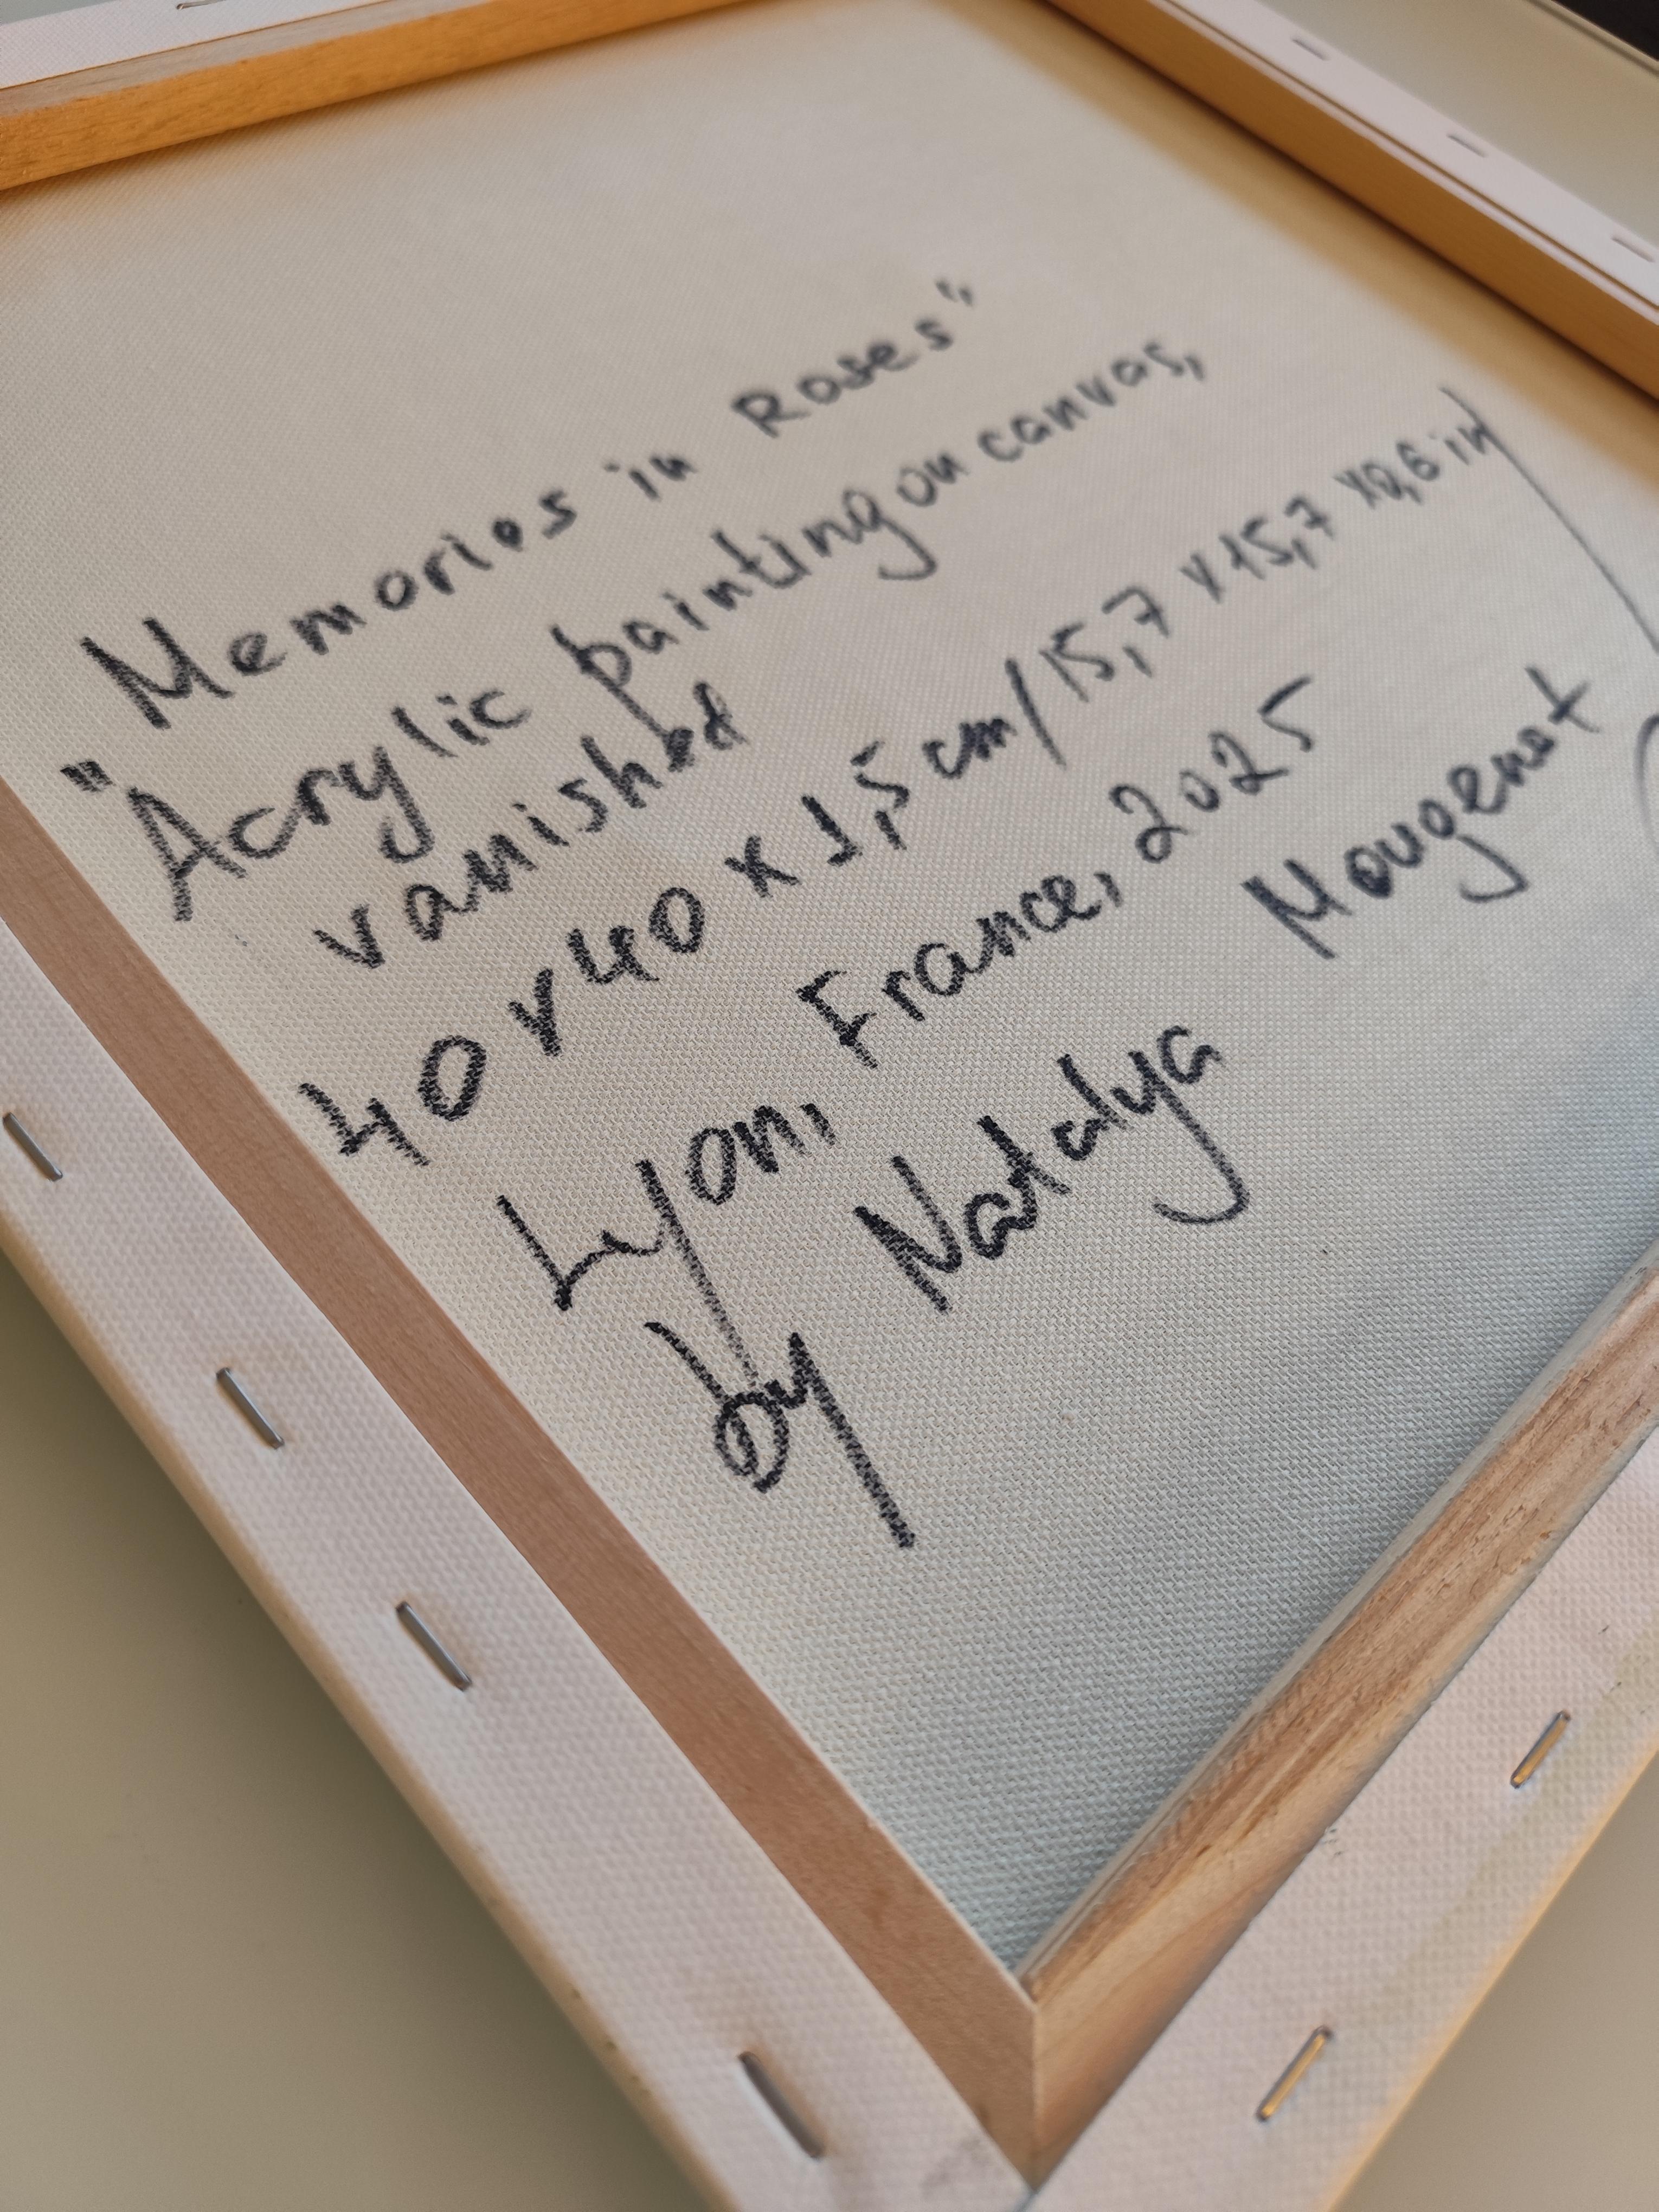 "Memories in Roses"
Acrylic painting on canvas,
vanished
40 x 40 x 1,5 cm / 15,7 x 15,7 x 0,6 in
Lyon, France, 2025
by Natalya Mougenot